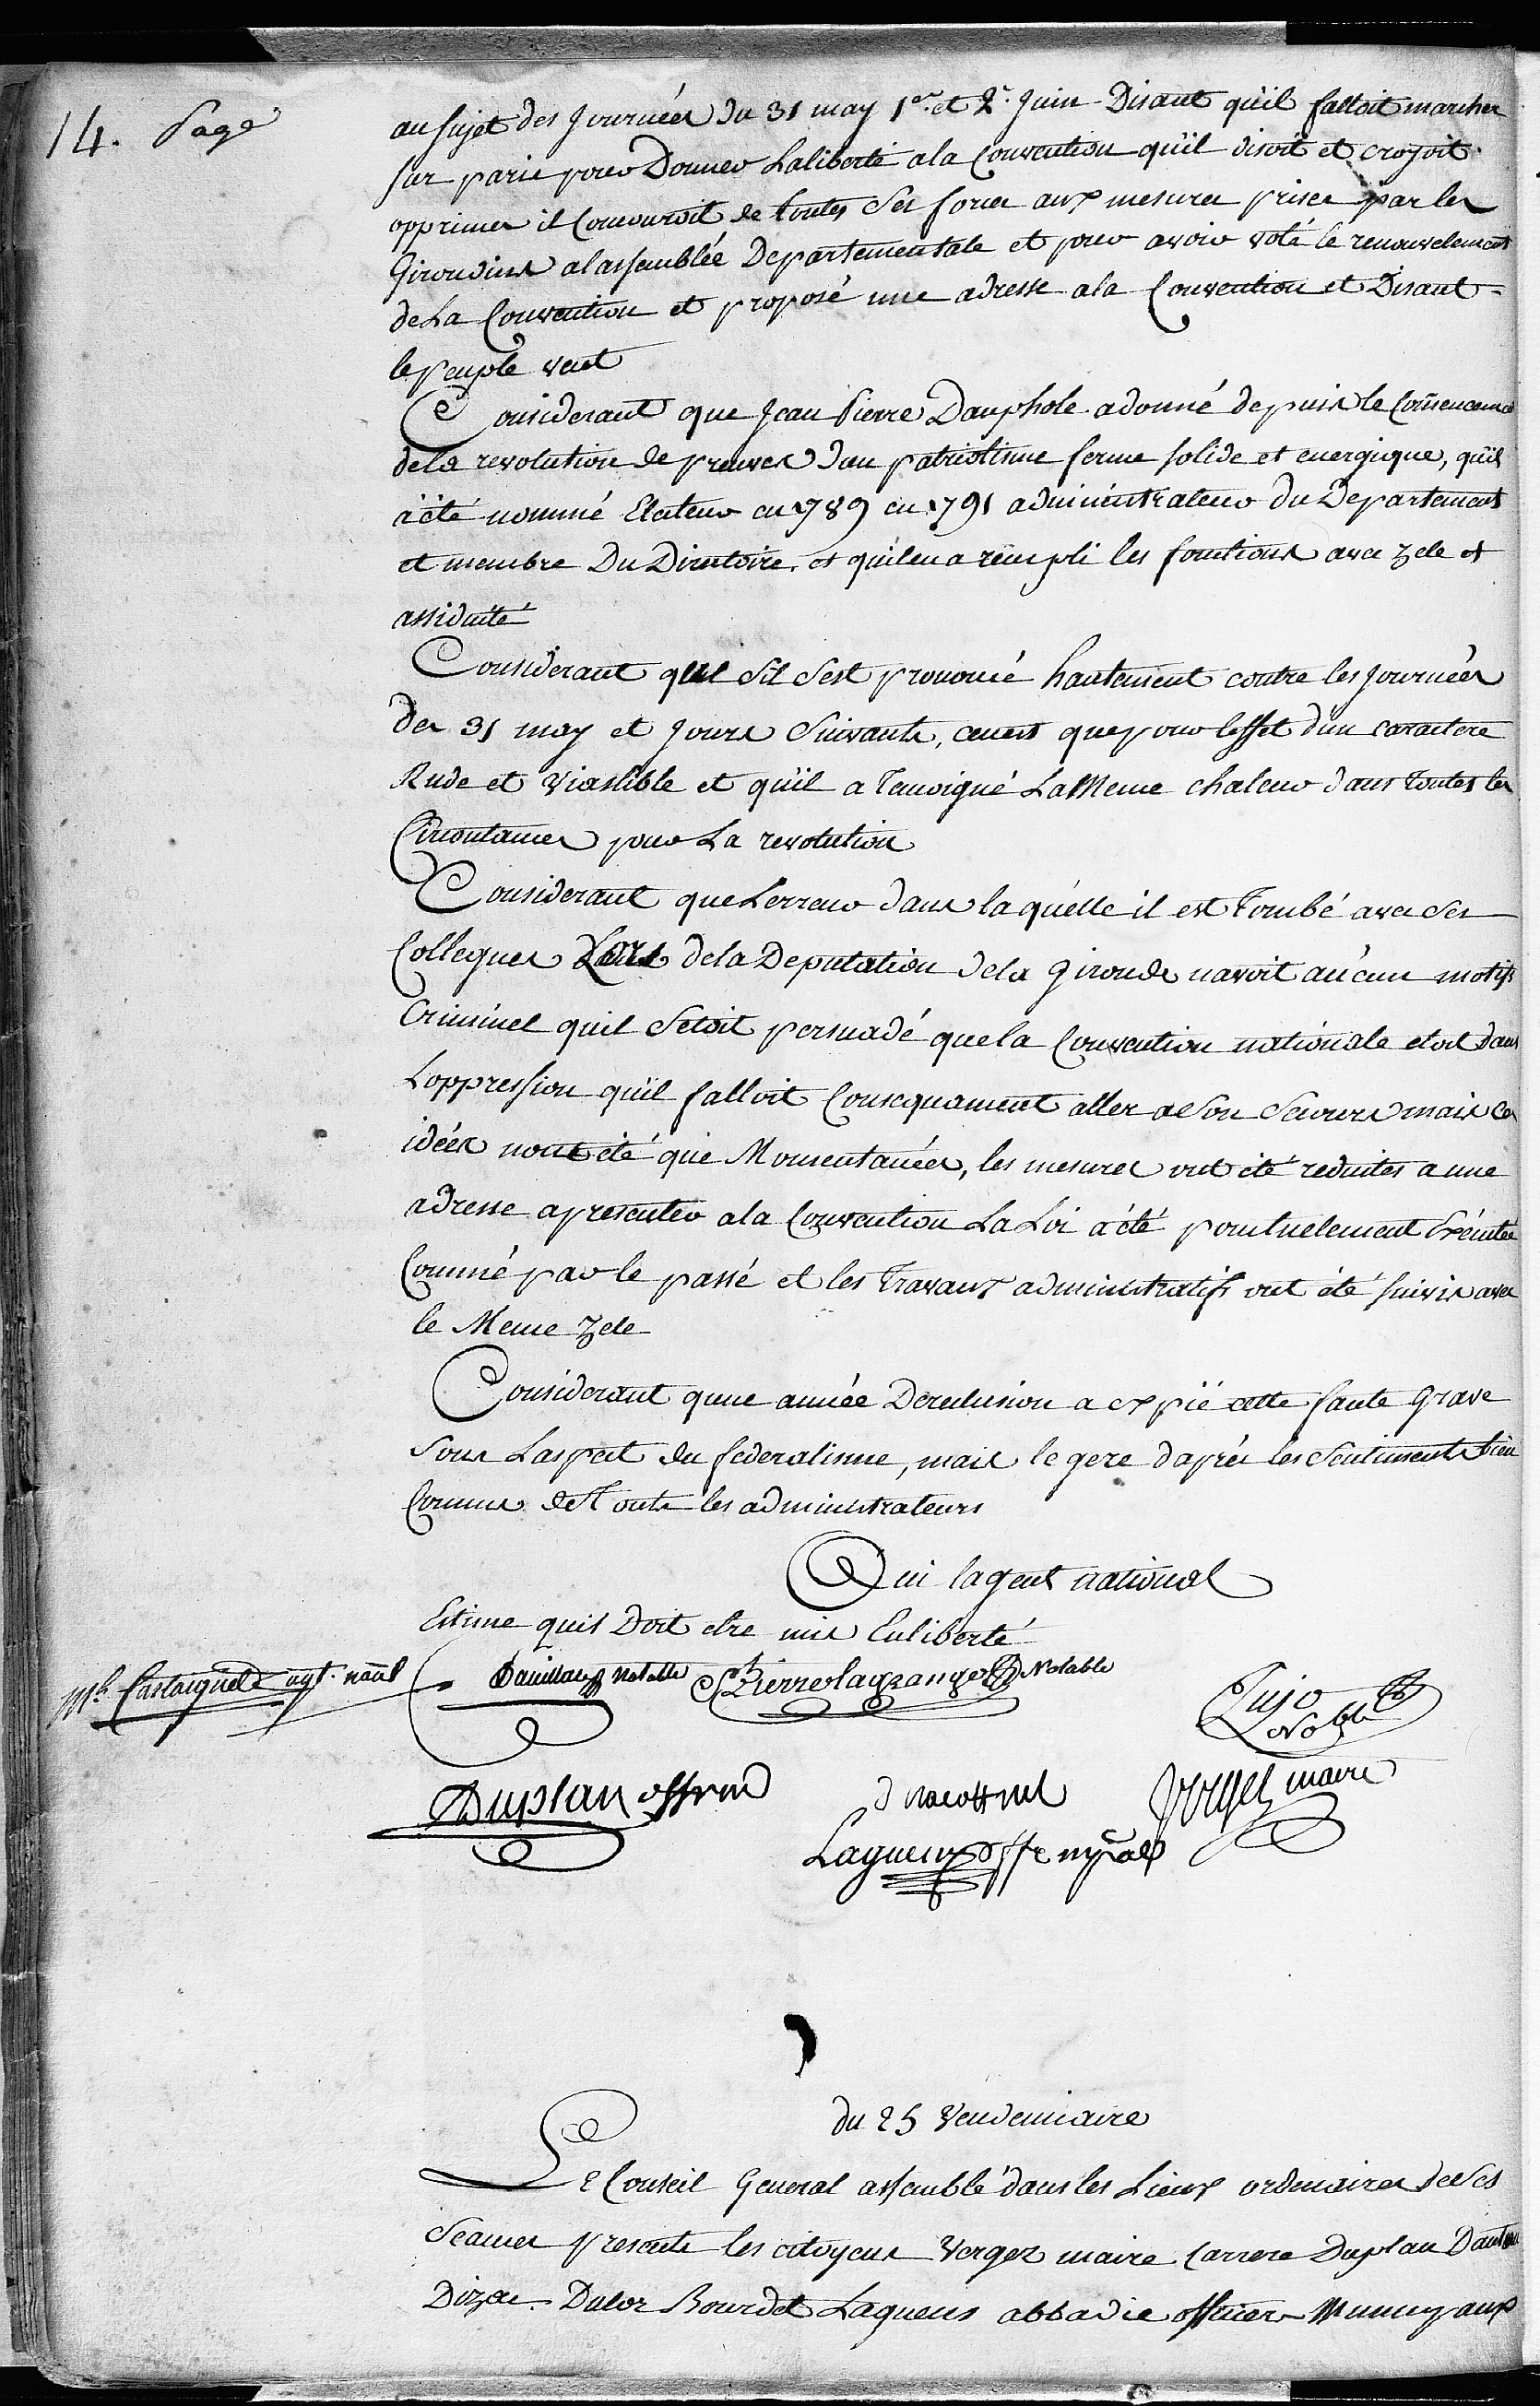 14. Page
au sujet des Journées du 31 may 1er et 2e Juin Disant qu'il falloit marcher
sur paris pour Donner Laliberté ala Convention qu'il disoit et croyoit
opprimer il Concouroit de toutes Ses forces aux mesures prises par les
Girondins alassemblée Departementale et pour avoir voté le renouvelement
deLa Convention et proposé une adresse ala Convention et Disant
lepeuple veut
Considerant que Jean Pierre Dauphole adonné depuis le Commencement
dela revolution de preuves d'un patriotisme ferme solide et energique, qu'il
aété nommé Electeur en 1789 en 1791 administrateur du Departement
et membre Du Directoire, et quilena rempli les fonctions avec zele et
assiduité
Considerant que Sil Sest prononcé hautement contre les Journées
des 31 may et Jours Suivants, cenest que pour leffet d'un caractere
Rude et et qu'il a Temoigné LaMeme chaleur dans toutes les
Circontances pour La revolution
Considerant que Lerreur dans laquélle il est Tombé avec Ses
Collegues Lors dela Deputation dela Gironde navoit aucun motifs
Criminel quil Setoit persuadé quela Convention nationale etoit dans
Loppression qu'il falloit Consequament aller aSon Secours mais ces
idées nont été que Momentanées, les mesures ont été reduites a une
adresse apresenter ala Convention La Loi aété pontuelement Exécutée
Commé par le passé et les Travaux administratifs ont été suivis avec
le Meme Zele
Considerant qune année Dereclusion a expié cette faute Grave
Sous Laspect du federalisme, mais legere d'après les Sentiments bien
Connus deTouts les administrateurs
Oui lagent national
Estime quil Doit etre mis Enliberté
Castaignet agt. naal
notable Pierre lagrange Notable
Pujo Noble
Duplan
Verges maire
Lagueux
du 25 Vendemiaire
Le Conseil General assemblé dans les Lieux ordenaires deSes
Seances presents les citoyens Verges maire Carrere Duplan
Dizac Dulor Bourdet Laguens abbadie officiers Municypaux